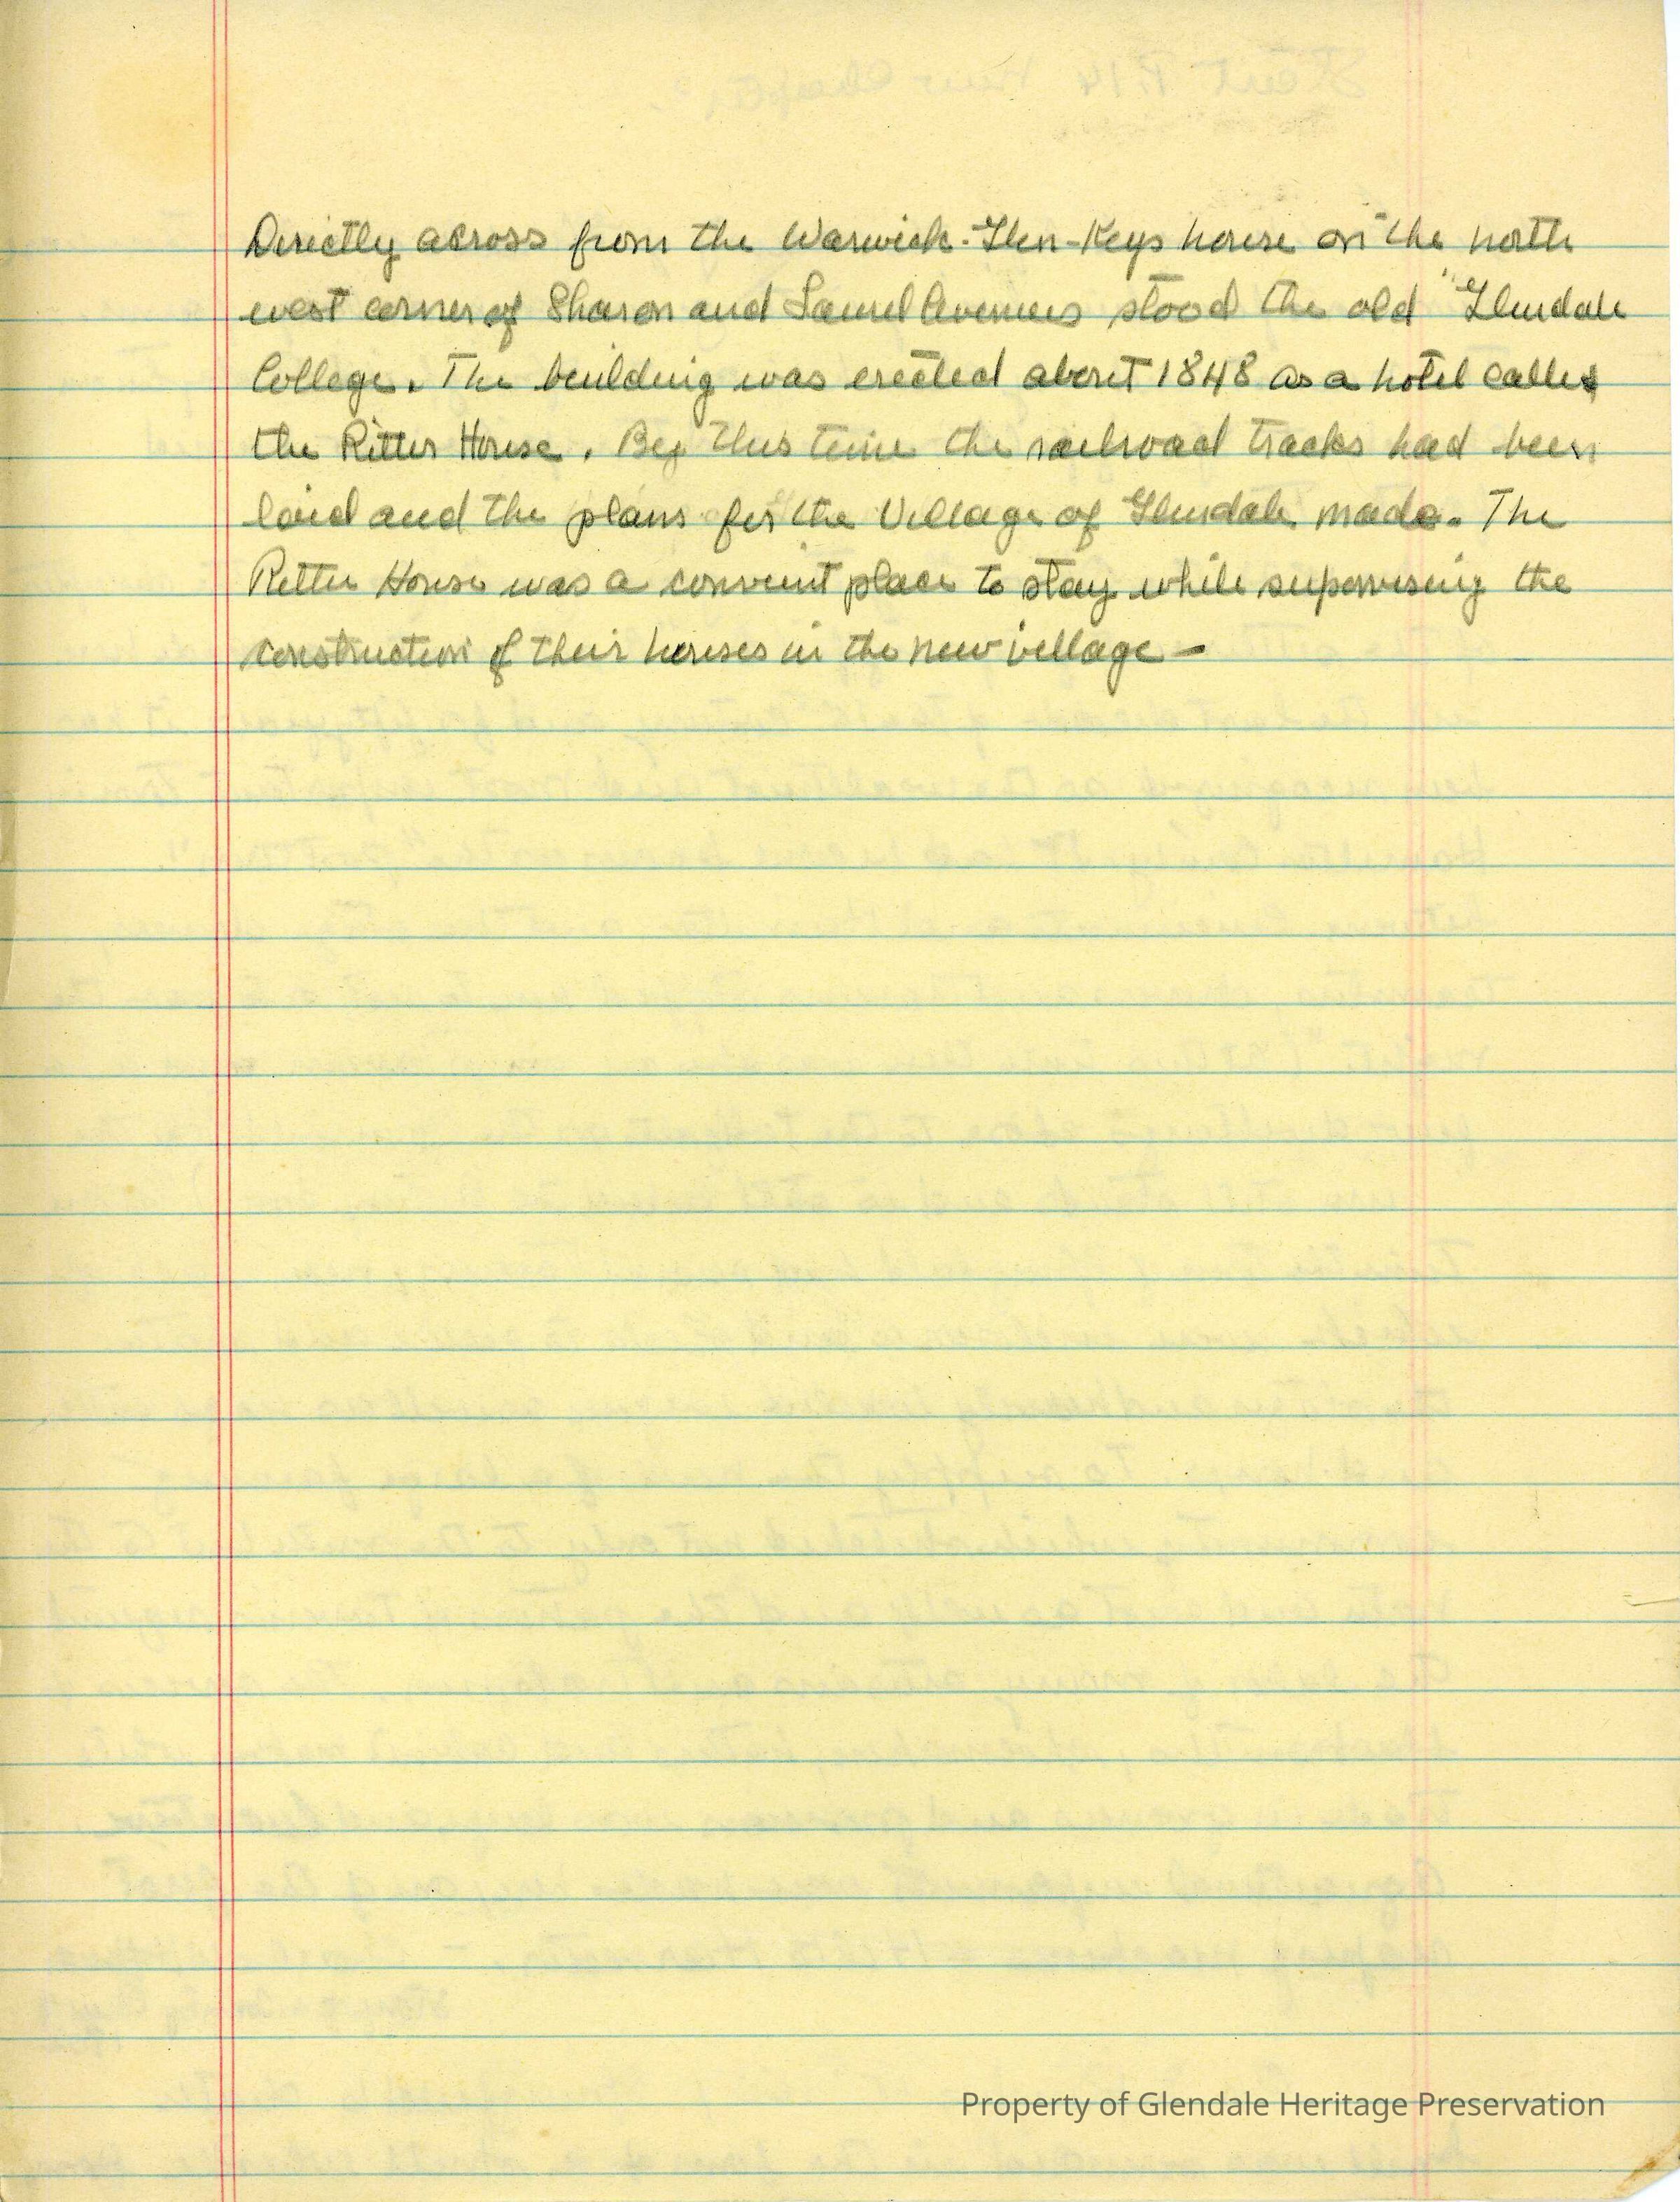 Directly across from the Warwick-Glen-Keys house on the north
west corner of Sharon and Laurel Avenues stood the old "Glendale
College. The building was erected about 1848 as a hotel called
the Ritter House. By this time the railroad tracks had been
laid and the plans for the Village of Glendale made. The
Ritter House was a convenint place to stay while supervising the
construction of their houses in the new village -
Property of Glendale Heritage Preservation